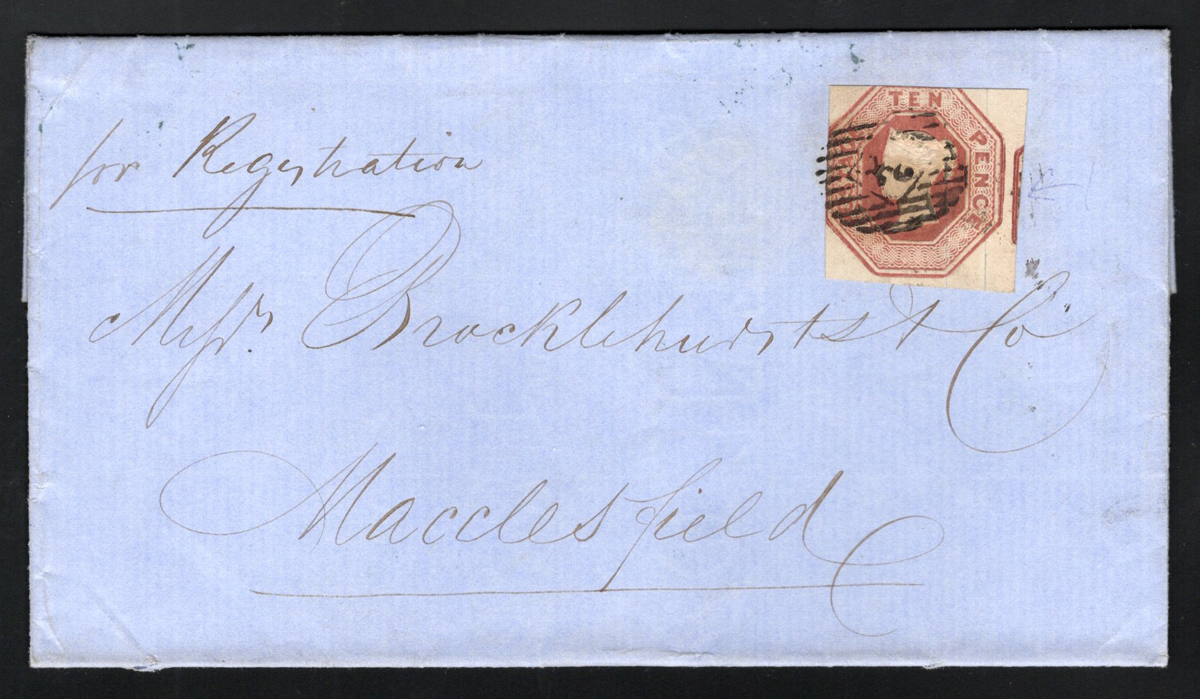 TEN PENCE
for Registration
Messrs. Brocklehurst & Co
Macclesfield